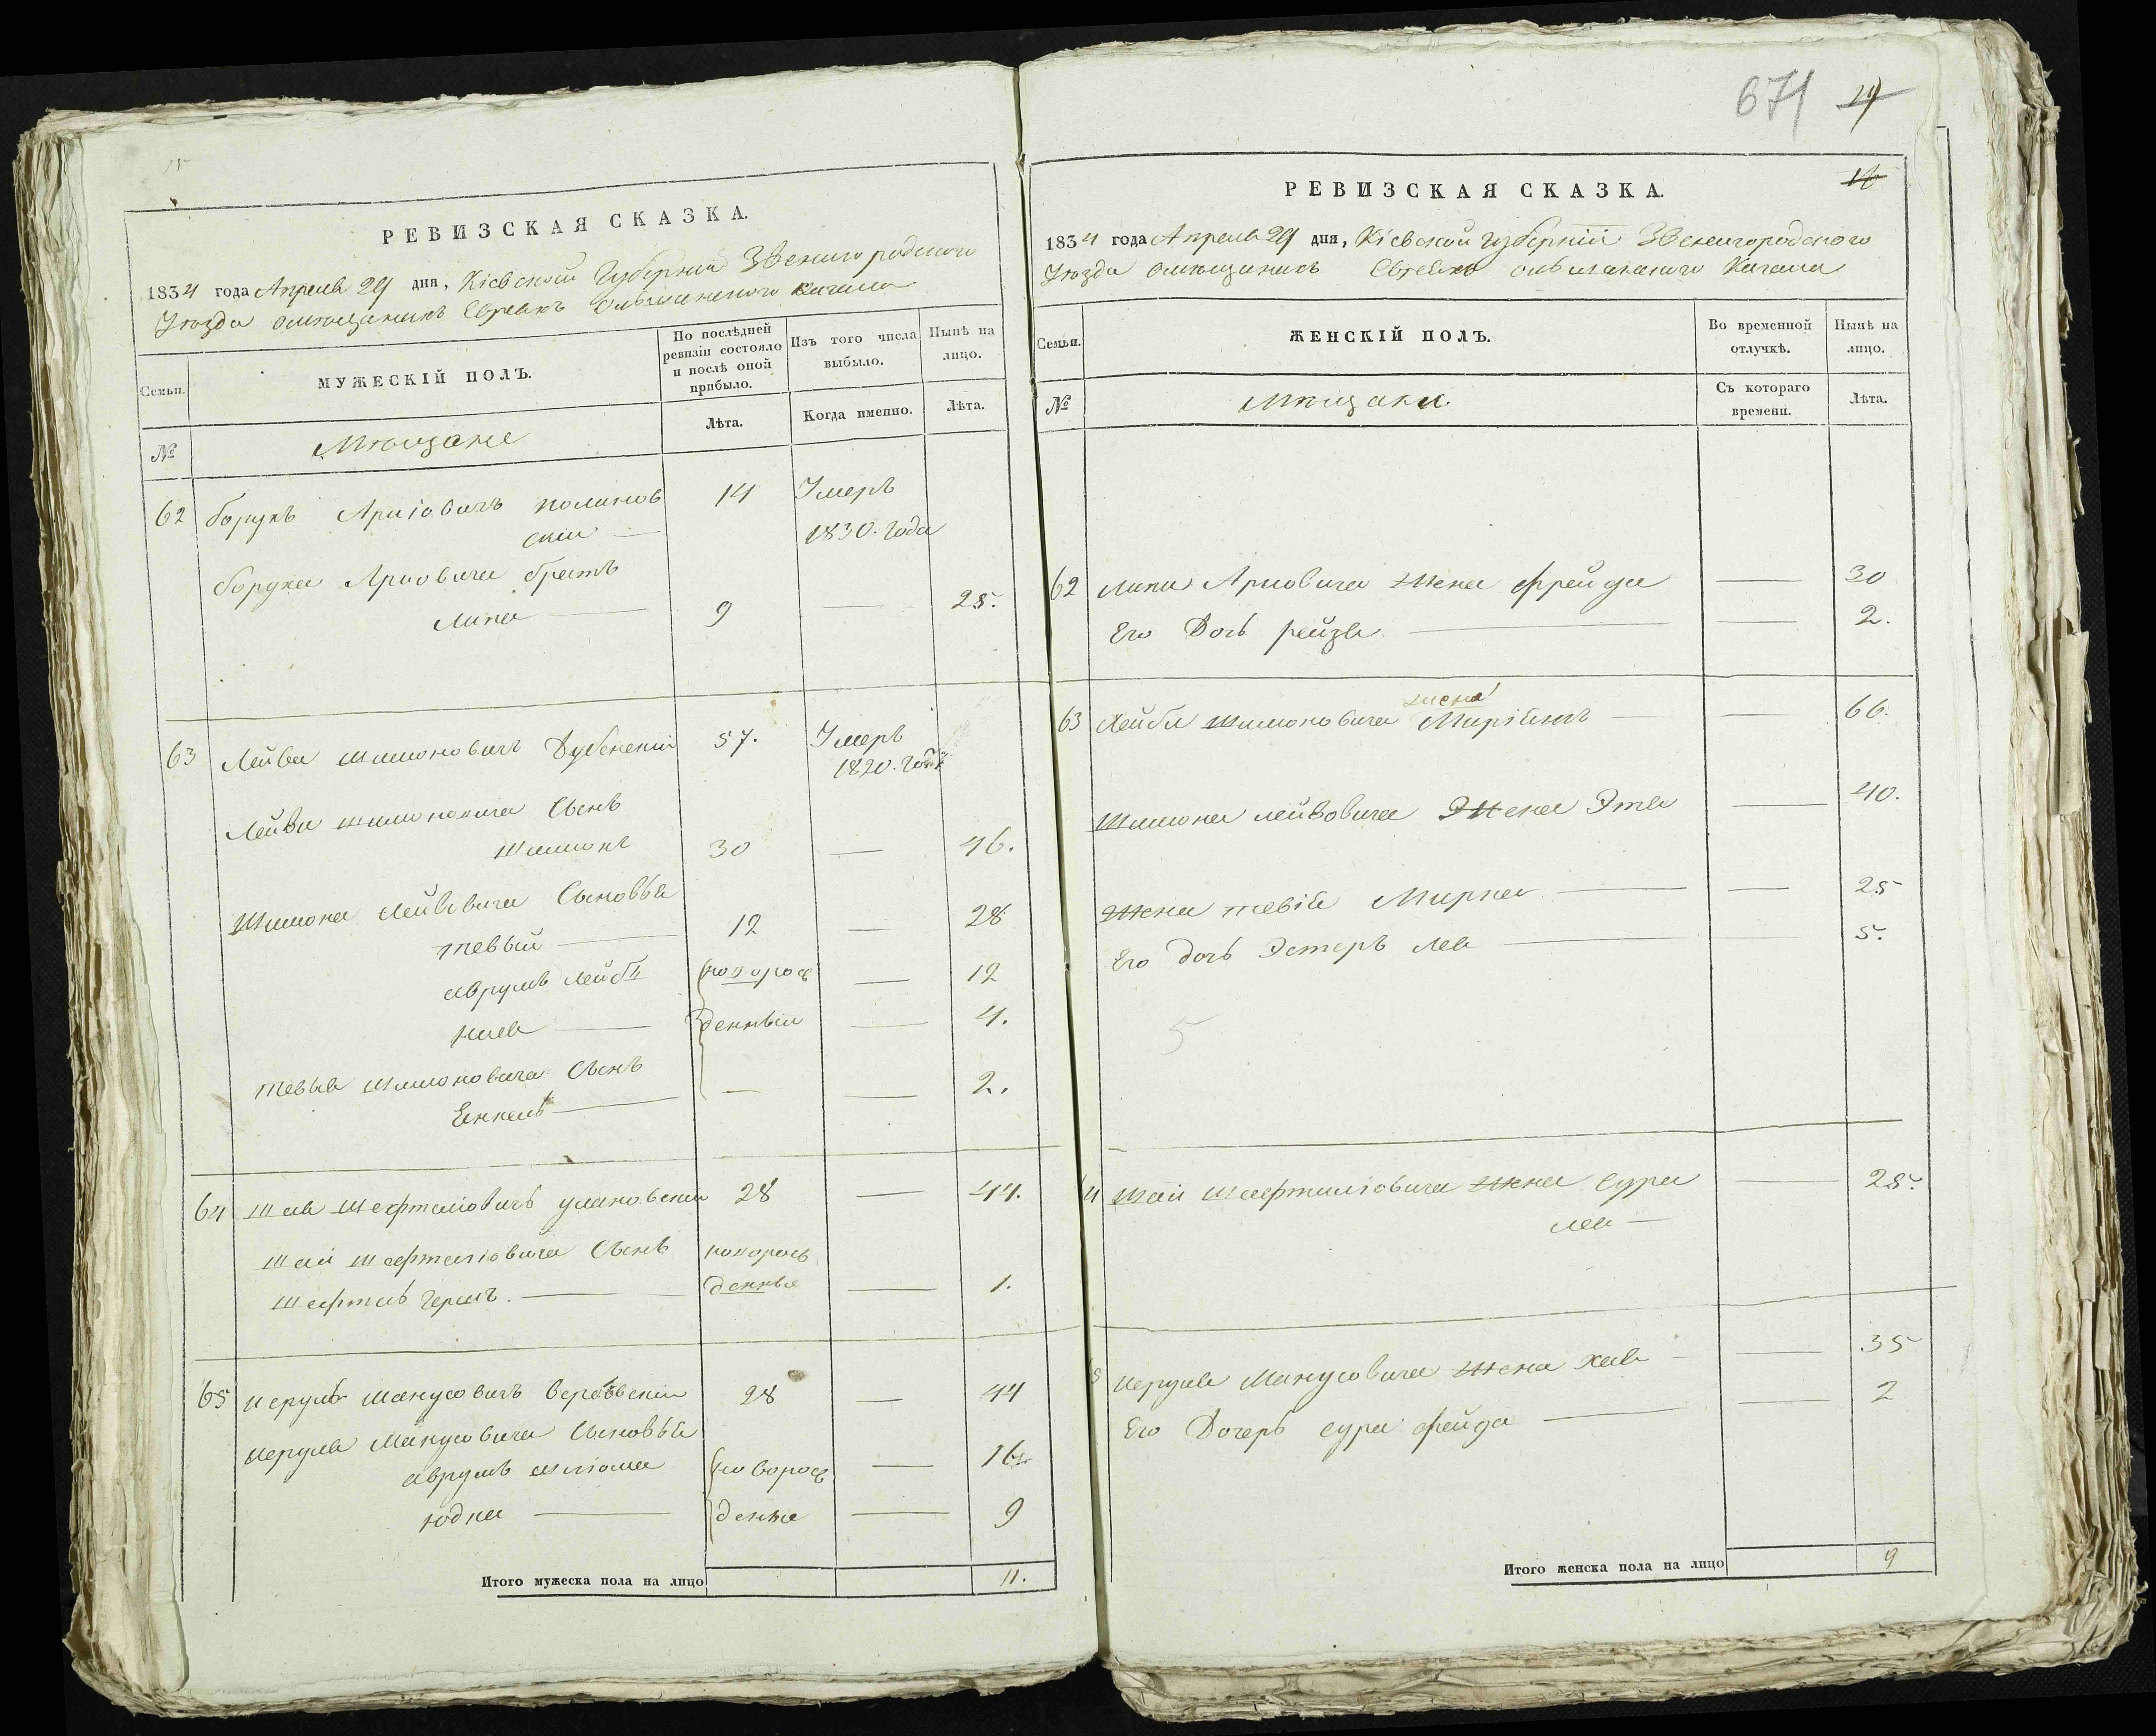 15
РЕВИЗСКАЯ СКАЗКА.
1834 года Апреля 29 дня, Кіевской Губерніи Звенигородского
Уѣзда омѣщанинѣ Евреяхъ Ольшанского Кагала
Семьи.
МУЖЕСКІЙ ПОЛЪ.
По послѣдней ревизіи состояло и послѣ оной прибыло.
Изъ того числа выбыло.
Нынѣ на лицо.
№
Мѣщане
Лѣта.
Когда именно.
Лѣта.
62 Борухъ Аріовичъ Полинов 14 Умеръ
скій — 1830. года
Боруха Аріовича братъ
Липа — 9 — 25.
63 Лейба Шимоновичъ Дубенскій 57. Умеръ
1820. году
Лейби Шимоновича Сынъ
Шимонъ 30 — 46.
Шимона Лейбовича Сыновья
тевый — 12 — 28
аврумъ Лейбъ новорож — 12
— денныи — 4.
тевыя Шимоновича Сынъ
Енкель — — — 2.
64 Шая Шефтеліовичъ улановскій 28 — 44.
Шаи Шефтеліовича Сынъ новорож
Шефтель Гершъ. — денные — 1.
65 Иерулъ Манусовичъ 28 — 44
Иерула Манусовича Сыновья
аврумъ шліома новорож — 16
юдка — денные — 9
Итого мужеска пола на лицо 11.
671 14
РЕВИЗСКАЯ СКАЗКА.
1834 года Апреля 29 дня, Кіевской губерніи Звенигородского
Уѣзда омѣщанинѣ Евреяхъ ольшанского Кагала
Семьи.
ЖЕНСКІЙ ПОЛЪ.
Во временной отлучкѣ.
Нынѣ на лицо.
№
Мѣщане
Съ котораго времени.
Лѣта.
62 Липи Аріовича Жена фрейда — 30
Его Дочь рейзя — — 2.
жена
63 Лейби Шимоновича Миріямъ — — 66.
Шимона лейбовича Жена Этя — 40.
Жена тевія Мирка — — 25
Его дочь Эстеръ лея — — 5.
5
Шаи Шефтиліовича Жена Сура — 25.
лея —
Иерула Манусовича Жена Хая — — 35
Его Дочерь сура фейга — — 2
Итого женска пола на лицо 9